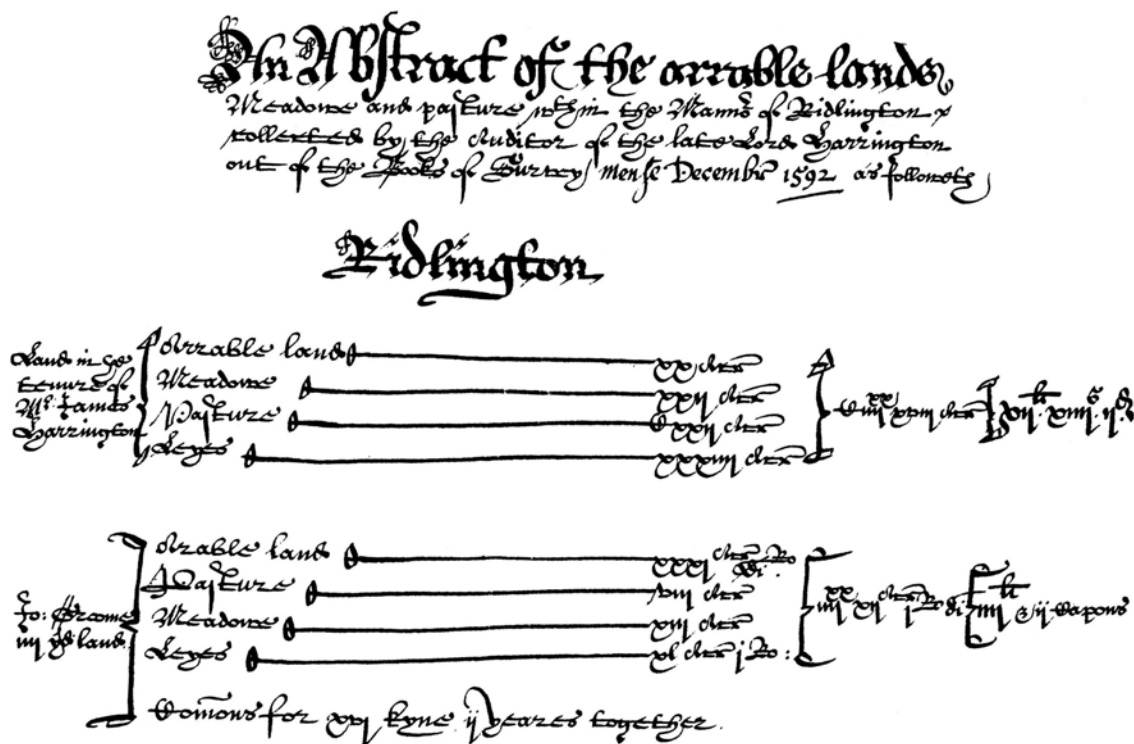 An Abstract of the arrable lands
Meadowe and pasture wthin the Mannor of Ridlington &
collected by the Auditor of the late Lord Harrington
out of the Books of Survey mense Decembr 1592 as followeth
Ridlington
Land in ye
tenure of
Mr. James
Harrington
Arrable land xx Acr
Meadowe xxij Acr
Pasture Cxxij Acr
Leyes xxxiiij Acr
C iiijxx xviij Acr xij li xiiij s ij d
Jo:
iiij yd land
Arable land xxxj Acr j Ro di.
Pasture viij Acr
Meadowe xiij Acr
Leyes xl Acr j Ro:
iiijxx xij Acr j Ro di iiij li & ij Capons
Comons for xvj kyne ij yeares together.